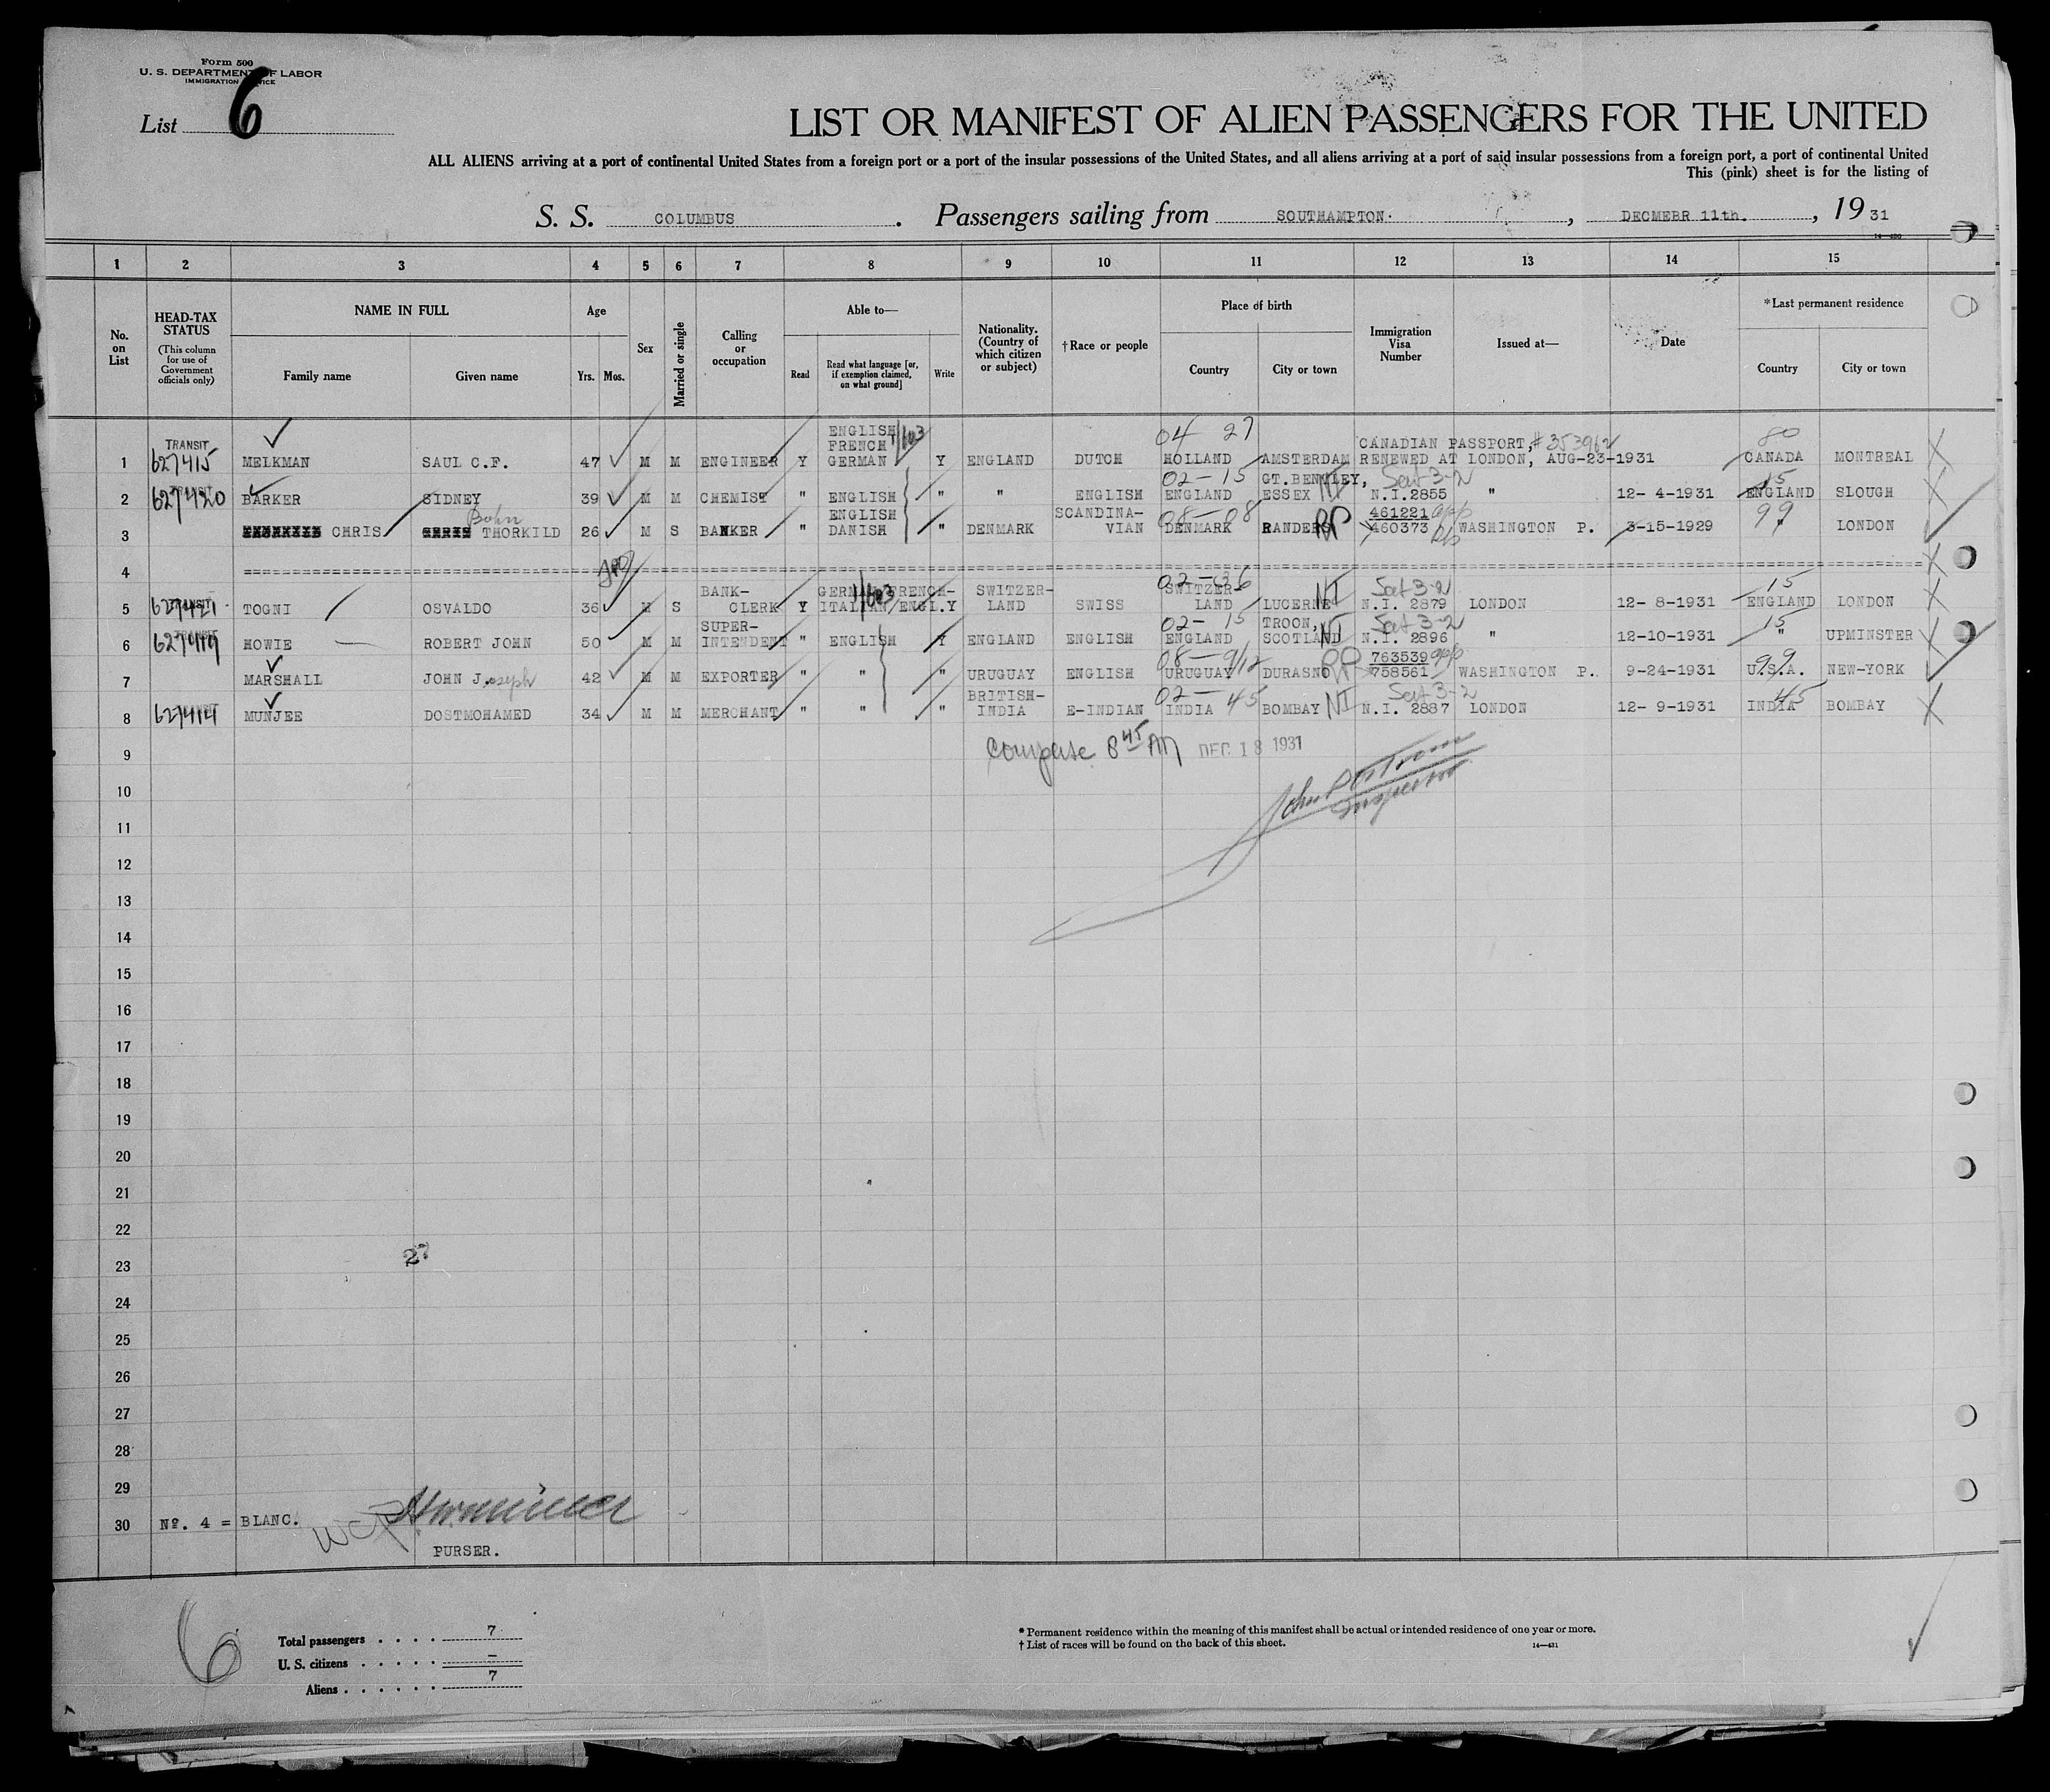 Form 500
U. S. DEPARTMENT OF LABOR
IMMIGRATION SERVICE
List 6
LIST OR MANIFEST OF ALIEN PASSENGERS FOR THE UNITED
ALL ALIENS arriving at a port of continental United States from a foreign port or a port of the insular possessions of the United States, and all aliens arriving at a port of said insular possessions from a foreign port, a port of continental United
This (pink) sheet is for the listing of
S. S. COLUMBUS. Passengers sailing from SOUTHAMPTON, DECMEBR 11th., 19 31
1 2 3 4 5 6 7 8 9 10 11 12 13 14 15
No. on List
HEAD-TAX STATUS (This column for use of Government officials only)
NAME IN FULL Family name Given name
Age Yrs. Mos.
Sex
Married or single
Calling or occupation
Able to— Read Read what language [or, if exemption claimed, on what ground] Write
Nationality. (Country of which citizen or subject)
†Race or people
Place of birth Country City or town
Immigration Visa Number
Issued at—
Date
*Last permanent residence Country City or town
1 TRANSIT 627415 MELKMAN SAUL C.F. 47 M M ENGINEER Y ENGLISH FRENCH GERMAN Y ENGLAND DUTCH 04 27 HOLLAND AMSTERDAM CANADIAN PASSPORT, #353962 RENEWED AT LONDON, AUG-23-1931 80 CANADA MONTREAL
2 TRANSIT 627420 BARKER SIDNEY 39 M M CHEMIST " ENGLISH " " ENGLISH 02-15 ENGLAND GT.BENTLEY, ESSEX NI Sect 3-2 N.I.2855 " 12- 4-1931 15 ENGLAND SLOUGH
3 CHRIS Bohn THORKILD 26 M S BANKER " ENGLISH DANISH " DENMARK SCANDINAVIAN 08-08 DENMARK RANDERS RP 461221 460373 WASHINGTON P. 3-15-1929 99 " LONDON
4
5 TRANSIT 627421 TOGNI OSVALDO 36 M S BANK-CLERK Y GERMAN FRENCH-ITALIAN/ENGL. Y SWITZER-LAND SWISS 02-36 SWITZER-LAND LUCERNE NI Sect 3-2 N.I. 2879 LONDON 12- 8-1931 15 ENGLAND LONDON
6 TRANSIT 627419 HOWIE ROBERT JOHN 50 M M SUPER-INTENDENT " ENGLISH Y ENGLAND ENGLISH 02-15 ENGLAND TROON, SCOTLAND NI Sect 3-2 N.I. 2896 " 12-10-1931 15 " UPMINSTER
7 MARSHALL JOHN Joseph 42 M M EXPORTER " " " URUGUAY ENGLISH 08-9/12 URUGUAY DURASNO RP 763539 758561 WASHINGTON P. 9-24-1931 99 U.S.A. NEW-YORK
8 TRANSIT 627414 MUNJEE DOSTMOHAMED 34 M M MERCHANT " " " BRITISH-INDIA E-INDIAN 02-45 INDIA BOMBAY NI Sect 3-2 N.I. 2887 LONDON 12- 9-1931 45 INDIA BOMBAY
9 8 45 AM DEC 18 1931
10 Inspector
11
12
13
14
15
16
17
18
19
20
21
22
23 27
24
25
26
27
28
29
30 Nº. 4 = BLANC.
PURSER.
6
Total passengers . . . . 7
U. S. citizens . . . . . –
Aliens . . . . . . 7
* Permanent residence within the meaning of this manifest shall be actual or intended residence of one year or more.
† List of races will be found on the back of this sheet. 14—431